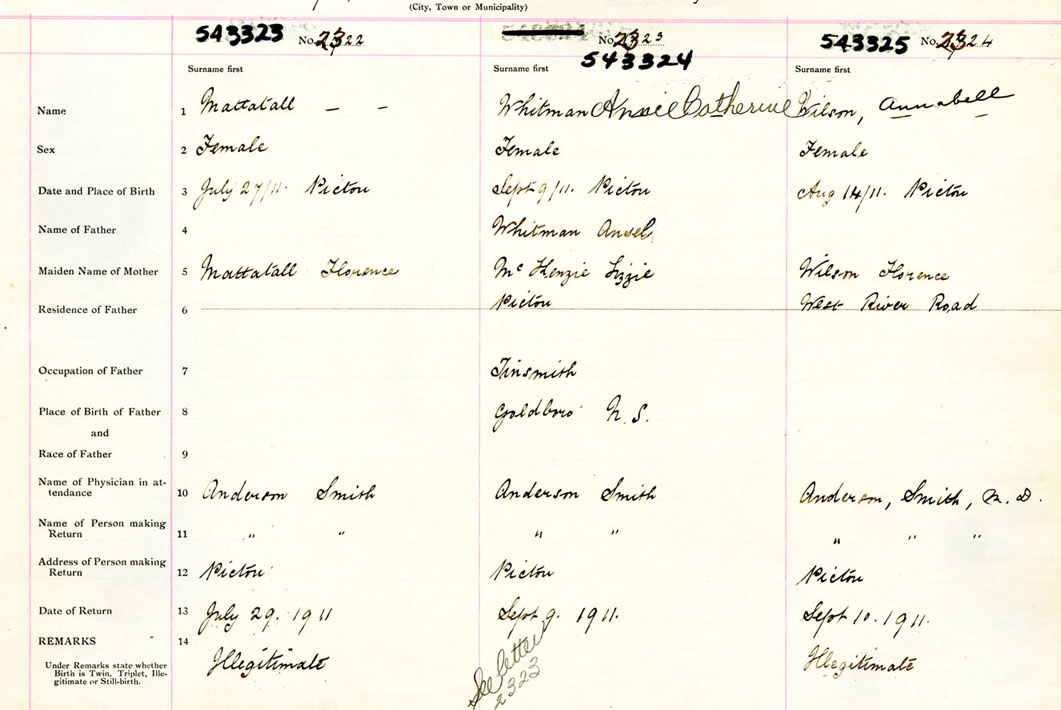 (City, Town or Municipality)
543323 No. 2322 No. 2323 543325 No. 2324
543324
Surname first Surname first Surname first
Name 1 Mattatall — — Whitman Annie Catherine Wilson, Annabell
Sex 2 Female Female Female
Date and Place of Birth 3 July 27/11. Pictou Sept 9/11. Pictou Aug 14/11. Pictou
Name of Father 4 Whitman Ansel
Maiden Name of Mother 5 Mattatall Florence McKenzie Lizzie Wilson Florence
Residence of Father 6 Pictou West River Road
Occupation of Father 7 Tinsmith
Place of Birth of Father 8 Goldboro N.S.
and
Race of Father 9
Name of Physician in at-
tendance 10 Anderson Smith Anderson Smith Anderson, Smith, M.D.
Name of Person making
Return 11 " " " " " " "
Address of Person making
Return 12 Pictou Pictou Pictou
Date of Return 13 July 29. 1911 Sept 9. 1911. Sept 10. 1911.
REMARKS 14
Under Remarks state whether
Birth is Twin, Triplet, Ille-
gitimate or Still-birth.
Illegitimate Illegitimate
See letter
2323